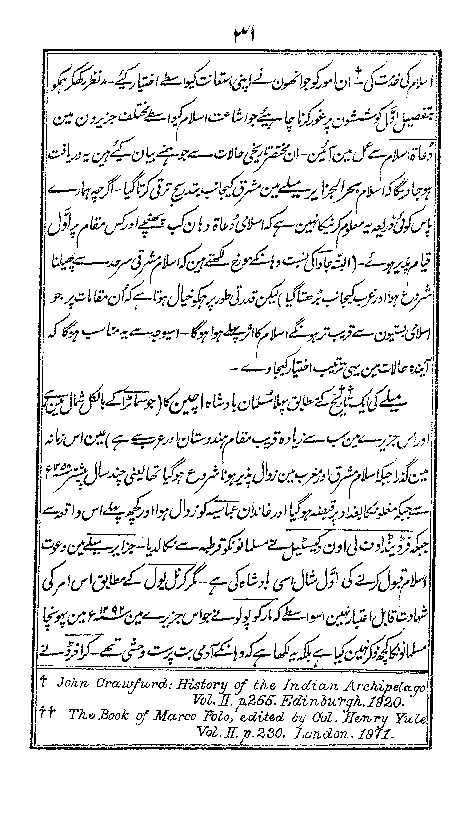 ۳۱
اسلام کی خدمت کی † ان امور کو جو انھون نے اپنی استعانت کیواسطے اختیار کیئے۔ مدنظر رکھکر ہمکو
بتفصیل اوّل کوششون پر غور کرنا چاہیئے جو اشاعت اسلام کیواسطے مختلف جزیرون مین
دُعاۃ اسلام سے عمل مین آئین۔ ان مختصر تاریخی حالات سے جو ہمنے بیان کیئے ہین یہ دریافت
ہو جاویگا کہ اسلام بحر الجزایر میلے مین مشرق کیجانب بتدریج ترقی کرتا گیا۔ اگرچہ ہمارے
پاس کوئی ذریعہ یہ معلوم کرنیکا نہین ہے کہ اسلامی دُعاۃ وہان کب پہنچے اور کس مقام پر اوّل
قیام پذیر ہوئے۔ (البتہ جاوا کی نسبت وہانکے مورخ لکھتے ہین کہ اسلام مشرقی سرحد سے پھیلنا
شروع ہوا اور غرب کیجانب بڑھتا گیا) لیکن قدرتی طور پر ہمکو خیال ہوتا ہے کہ اُن مقامات پر جو
اسلامی بستیون سے قریب تر ہونگے اسلام کا اثر پہلے ہوا ہوگا۔ اسیوجہ سے یہ مناسب ہوگا کہ
آیندہ حالات مین یہی ترتیب اختیار کیجاوے۔
میلے کی ایک تاریخ کے مطابق پہلا مسلمان بادشاہ اچین کا (جو سماٹرا کے بالکل شمال مین ہے
اور اس جزیرے مین سب سے زیادہ قریب مقام ہندوستان اور عرب سے ہے) عین اس زمانہ
مین گذرا جبکہ اسلام مشرق اور مغرب مین زوال پذیر ہونا شروع ہوگیا تھا یعنی چند سال پیشتر ۱۲۵۸ء
سے جبکہ مغلونکا بغداد پر قبضہ ہوگیا اور خاندان عباسیہ کو زوال ہوا اور کچھ پہلے اس واقعہ سے
جبکہ فرڈیننڈ اوف لی اون کیسٹیل نے مسلمانونکو قرطبہ سے نکالدیا۔ جزایر میلے مین دعوت
اسلام قبول کرنے کی اوّل مثال اسی بادشاہ کی ہے۔ مگر کرنل یول کے مطابق اس امر کی
شہادت قابل اعتبار نہین اسواسطے کہ مارکو پولو نے جو اس جزیرے مین ۱۲۹۲ء مین پہونچا
مسلمانونکا کچھ ذکر نہین کیا ہے بلکہ یہ لکھا ہے کہ وہانکے آدمی بت پرست وحشی تھے۔ کرافرڈ نے
† John Crawfurd: History of the Indian Archipelago
Vol. II. p255. Edinburgh. 1920.
†† The Book of Marco Polo, edited by Col. Henry Yule
Vol. II. p. 230. London. 1871.